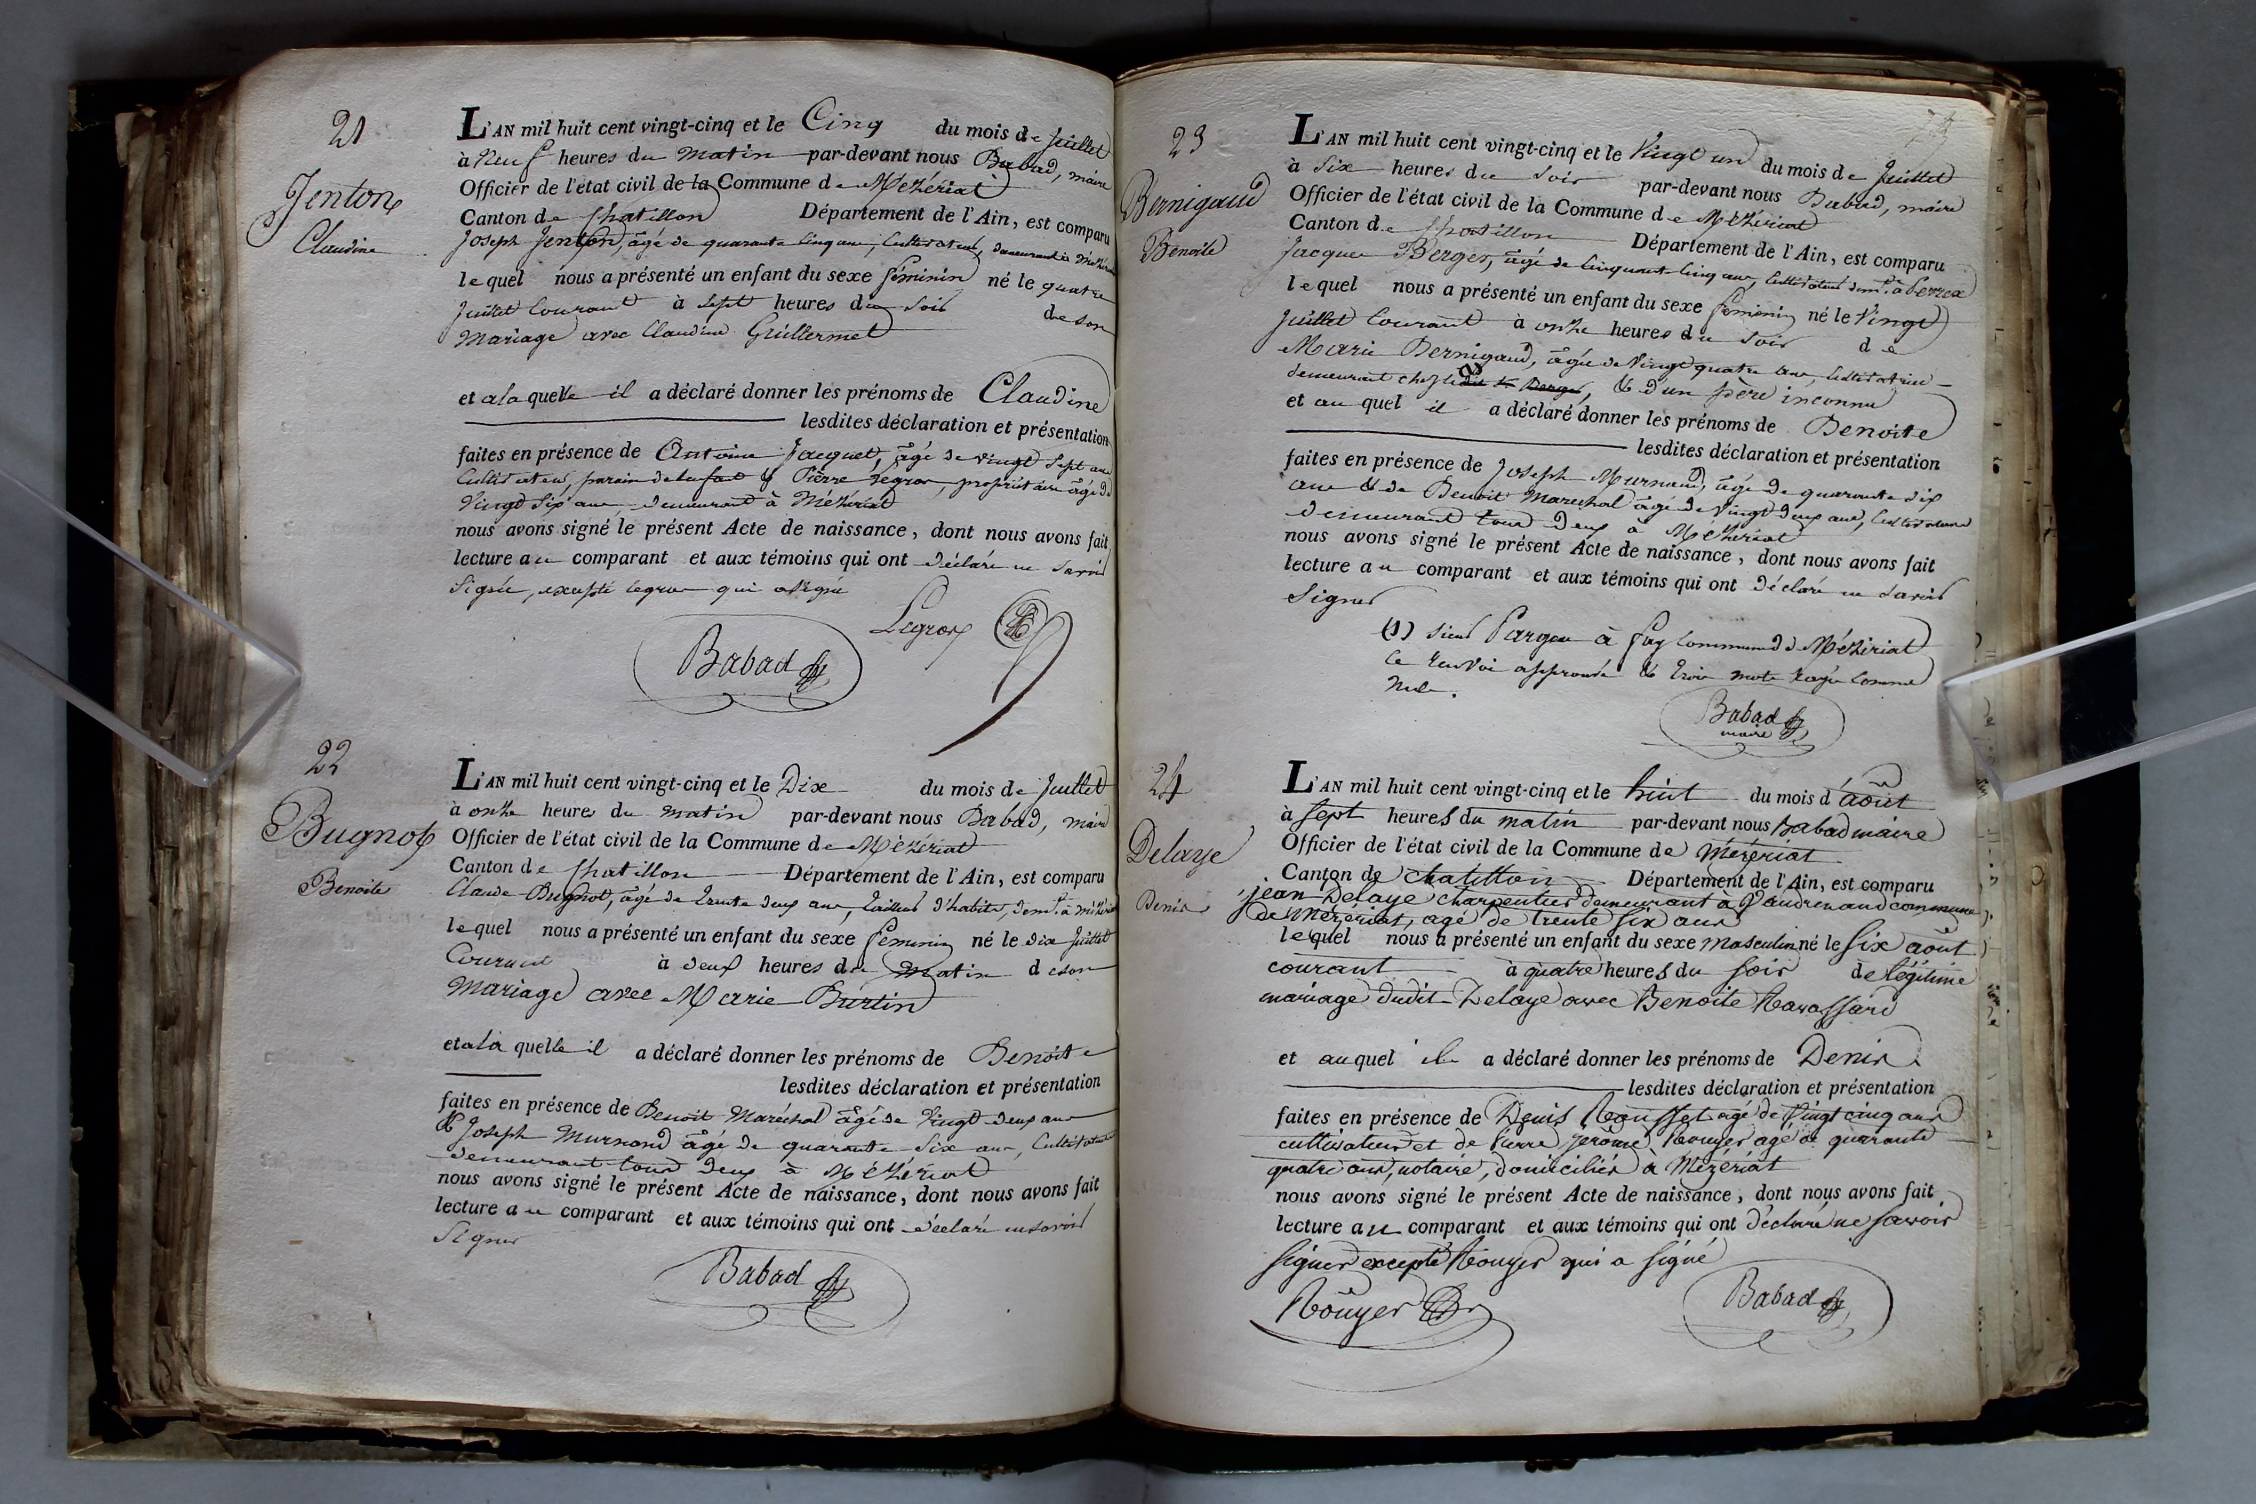 21
Jenton
Claudine
L'AN mil huit cent vingt-cinq et le Cinq du mois de Juillet
à Neuf heures du matin par-devant nous Babad, maire
Officier de l'état civil de la Commune de Mézériat
Canton de Chatillon Département de l'Ain, est comparu
Joseph Jenton, âgé de quarante cinq ans, Cultivateur, demeurant à Mézériat
lequel nous a présenté un enfant du sexe féminin né le quatre
Juillet Courant à sept heures du soir de son
Mariage avec Claudine Guillermet
et a la quelle il a déclaré donner les prénoms de Claudine
lesdites déclaration et présentation
faites en présence de Antoine Jacquet, âgé de vingt sept ans
Cultivateur, parain de l'enfant & Pierre Legros, propriétaire âgé de
Vingt Six ans demeurant à Mézériat
nous avons signé le présent Acte de naissance, dont nous avons fait
lecture au comparant et aux témoins qui ont déclaré ne savoir
Signer, excepté Legros qui a signé
Legros
Babad
22
Bugnot
Benoite
L'AN mil huit cent vingt-cinq et le Dix du mois de Juillet
à onze heures du matin par-devant nous Babad, maire
Officier de l'état civil de la Commune de Mézériat
Canton de Chatillon Département de l'Ain, est comparu
Claude Bugnot, âgé de trente deux ans, tailleur d'habits, demt. à Mézériat
lequel nous a présenté un enfant du sexe féminin né le dix Juillet
Courant à deux heures du Matin de son
Mariage avec Marie Burtin
et a la quelle il a déclaré donner les prénoms de Benoite
lesdites déclaration et présentation
faites en présence de Benoit Maréchal âgé de Vingt deux ans
& Joseph Murnand âgé de quarante Six ans, Cultivateurs
demeurant tous deux à Mézériat
nous avons signé le présent Acte de naissance, dont nous avons fait
lecture au comparant et aux témoins qui ont déclaré ne savoir
Signer
Babad
23
Bernigaud
Benoite
L'AN mil huit cent vingt-cinq et le Vingt un du mois de Juillet
à Six heures du Soir par-devant nous Babad, maire
Officier de l'état civil de la Commune de Mézériat
Canton de Chatillon Département de l'Ain, est comparu
Jacques Berger, âgé de Cinquante Cinq ans, Cultivateur demt. à Perrex
lequel nous a présenté un enfant du sexe féminin né le Vingt
Juillet Courant à onze heures du Soir de
Marie Bernigaud, âgée de Vingt quatre ans, Cultivatrice
demeurant chez le dit Sr Berger, & d'un père inconnu
et au quel il a déclaré donner les prénoms de Benoite
lesdites déclaration et présentation
faites en présence de Joseph Murnand, âgé de quarante six
ans & de Benoit Marechal âgé de Vingt deux ans, Cultivateurs
demeurant tous deux à Mézériat
nous avons signé le présent Acte de naissance, dont nous avons fait
lecture au comparant et aux témoins qui ont déclaré ne savoir
Signer
(1) sieur Pargeu à Fay Commune de Mézériat
Ce renvoi approuvé & trois mots rayés Comme
Nuls.
Babad
maire
24
Delaye
Denis
L'AN mil huit cent vingt-cinq et le huit du mois d'août
à sept heures du matin par-devant nous Babad maire
Officier de l'état civil de la Commune de Mézériat
Canton de Chatillon Département de l'Ain, est comparu
jean Delaye charpentier demeurant à Vaudrenand commune
de Mézériat, agé de trente six ans
lequel nous a présenté un enfant du sexe masculin né le Six août
courant à quatre heures du soir de légitime
mariage dudit Delaye avec Benoite Ravassard
et auquel il a déclaré donner les prénoms de Denis
lesdites déclaration et présentation
faites en présence de Denis Rousset agé de Vingt cinq ans
cultivateur et de Pierre Jerôme Rouyer agé de quarante
quatre ans, notaire, domiciliés à Mézériat
nous avons signé le présent Acte de naissance, dont nous avons fait
lecture au comparant et aux témoins qui ont déclaré ne savoir
signer excepté Rouyer qui a signé
Rouyer
Babad